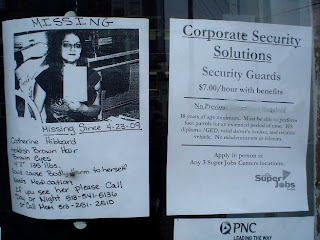 MISSING
Missing Since 4-23-09
Catherine Hibbard
Brown Hair
Brown Eyes
135 lbs.
Could cause Bodily Harm to herself
Needs Medication
If you see her please Call
Day or Night 513-541-5136
or Call Mom 513-251-2510
Corporate Security
Solutions
Security Guards
$7.00/hour with benefits
No Previous
18 years of age minimum. Must be able to perform
foot patrols for an extended period of time. HS
diploma/GED, valid driver's license, and reliable
vehicle. No misdemeanors or felonies.
Apply in person at
Any 3 Super Jobs Centers locations.
Super
Jobs
PNC
LEADING THE WAY